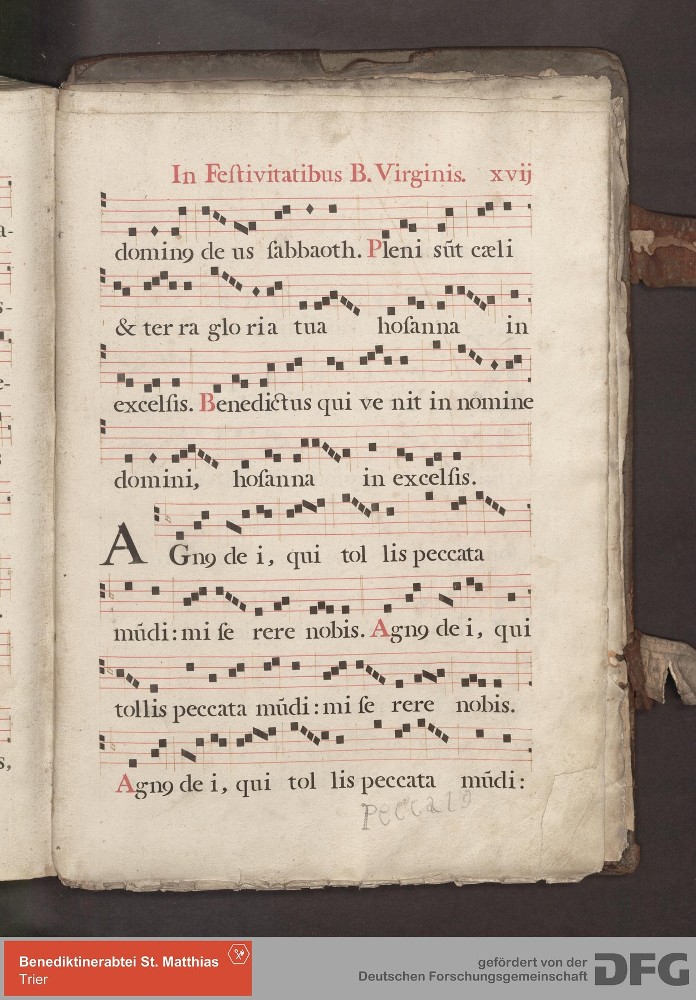 In Feſtivitatibus B. Virginis. xvij
domin9 de us ſabbaoth. Pleni sūt cæli
& ter ra glo ria tua hoſanna in
excelſis. Benedictus qui ve nit in nomine
domini, hoſanna in excelſis.
AGn9 de i, qui tol lis peccata
mūdi: mi ſe rere nobis. Agn9 de i, qui
tollis peccata mūdi: mi ſe rere nobis.
Agn9 de i, qui tol lis peccata mūdi:
Benediktinerabtei St. Matthias
Trier
gefördert von der
Deutschen Forschungsgemeinschaft
DFG